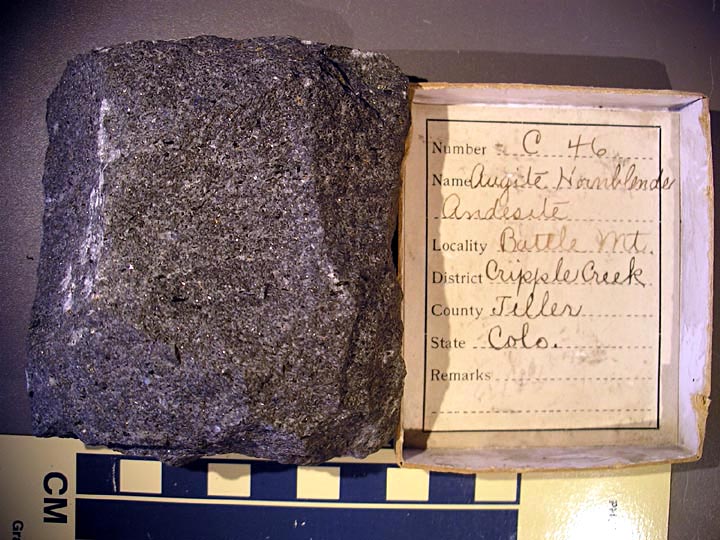 Number C 46
Name Augite Hornblende
Andesite
Locality Battle Mt.
District Cripple Creek
County Teller
State Colo.
Remarks
CM